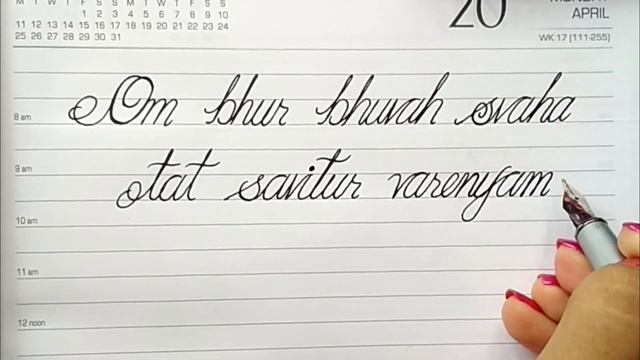 M T W T F S S M T W T F S S
1 2 3 4 5 6 7 8 9 10
11 12 13 14 15 16 17 18 19 20 21 22 23 24
25 26 27 28 29 30 31
20
APRIL
WK 17 (111-255)
8 am
Om bhur bhuvah svaha
9 am
tat savitur varenyam
10 am
11 am
12 noon